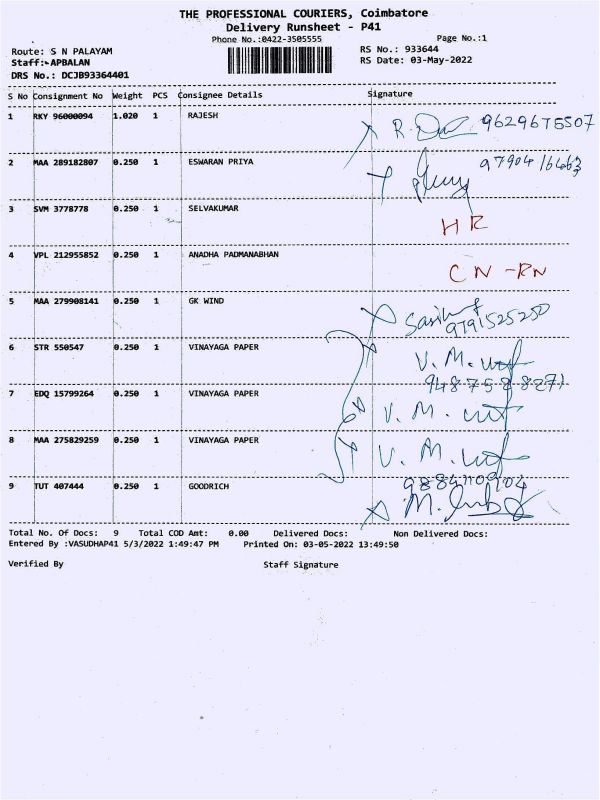 THE PROFESSIONAL COURIERS, Coimbatore
Delivery Runsheet - P41
Phone No.:0422-3505555
Page No.:1
Route: S N PALAYAM
RS No.: 933644
Staff:-APBALAN
RS Date: 03-May-2022
DRS No.: DCJB93364401
S No Consignment No Weight PCS Consignee Details Signature
1 RKY 96000094 1.020 1 RAJESH 9629675507
2 MAA 289182807 0.250 1 ESWARAN PRIYA
3 SVM 3778778 0.250 1 SELVAKUMAR HR
4 VPL 212955852 0.250 1 ANADHA PADMANABHAN CN -RN
5 MAA 279908141 0.250 1 GK WIND
9791525250
6 STR 550547 0.250 1 VINAYAGA PAPER V. M.
9487528271
7 EDQ 15799264 0.250 1 VINAYAGA PAPER V. M.
8 MAA 275829259 0.250 1 VINAYAGA PAPER V. M.
9 TUT 407444 0.250 1 GOODRICH M.
Total No. Of Docs: 9 Total COD Amt: 0.00 Delivered Docs: Non Delivered Docs:
Entered By :VASUDHAP41 5/3/2022 1:49:47 PM Printed On: 03-05-2022 13:49:50
Verified By Staff Signature